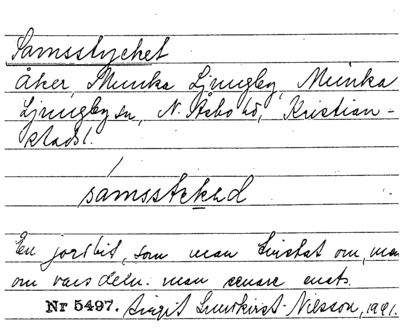 Samsstycket
åker, Munka Ljungby, Munka
Ljungby sn, N. Åsbo hd, Kristian-
stads l.
En jordbit, som man tvistat om, men
om vars man senare enats.
Nr 5497. Birgit Lundkvist-Nilsson, 1991.